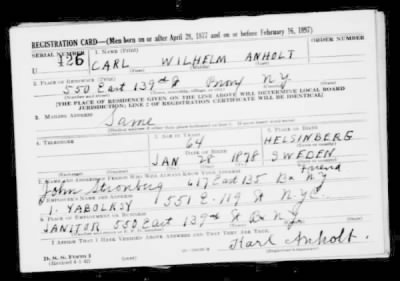 REGISTRATION CARD—(Men born on or after April 28, 1877 and on or before February 16, 1897)
SERIAL NUMBER 1. NAME (Print) ORDER NUMBER
U 126 CARL WILHELM ANHOLT
2. PLACE OF RESIDENCE (Print)
550 East 139 St Bronx N.Y.
[THE PLACE OF RESIDENCE GIVEN ON THE LINE ABOVE WILL DETERMINE LOCAL BOARD
JURISDICTION; LINE 2 OF REGISTRATION CERTIFICATE WILL BE IDENTICAL]
3. MAILING ADDRESS
Same
4. TELEPHONE 5. AGE IN YEARS 6. PLACE OF BIRTH
64 HELSINBERG
DATE OF BIRTH
JAN 28 1878 SWEDEN
Friend
John Stromberg 617 East 135 Bx NY
EMPLOYER'S NAME AND ADDRESS
I. YABOLRSY 551 E. 119 St N.Y.C.
9. PLACE OF EMPLOYMENT OR BUSINESS
JANITOR 550 East 139 St Bx N.Y.
I AFFIRM THAT I HAVE VERIFIED ABOVE ANSWERS AND THAT THEY ARE TRUE.
D. S. S. Form 1
Karl Anholt.